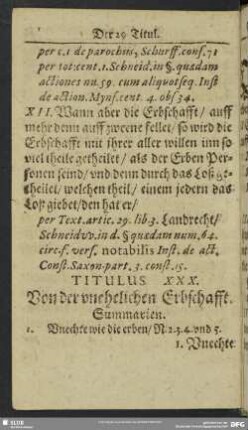 Der 29 Titul.
per c. 1 de parochiis, Schurff. cons. 71
per tot: cent. 1. Schneid. in §. quædam
actiones nu. 59. cum aliquot seq. Inst
de action. Myns. cent. 4. obs 34.
XII. Wann aber die Erbschafft / auff
mehr denn auff zweene fellet / so wird die
Erbschafft mit jhrer aller willen inn so
viel theile getheilet / als der Erben Per-
sonen seind / vnd denn durch das Loß ge-
theilet / welchen theil / einem jedern das
Loß giebet / den hat er /
per Text. artic. 29. lib. 3. Landrecht /
Schneidvv. in d. § quædam num. 64.
circ. f. vers. notabilis Inst. de act.
Const. Saxon. part. 3. const. 15.
TITULUS XXX.
Von der vnehelichen Erbschafft.
Summarien.
1. Vnechte wie die erben / N 2. 3. 4. vnd 5.
1. Vnechte